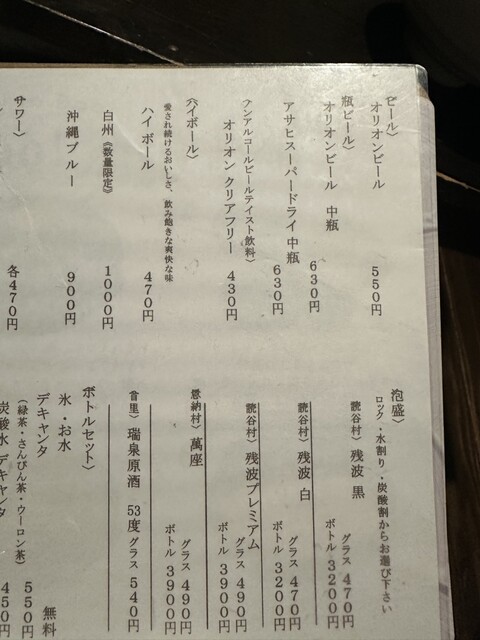 ビール〉
オリオンビール　550円
瓶ビール〉
オリオンビール　中瓶　630円
アサヒスーパードライ 中瓶　630円
ノンアルコールビールテイスト飲料〉
オリオン クリアフリー　430円
ハイボール〉
愛され続けるおいしさ、飲み飽きな爽快な味
ハイ ボール　470円
白州《数量限定》　1000円
沖縄ブルー　900円
サワー〉
各470円
泡盛〉
ロック・水割り・炭酸割からお選び下さい
読谷村〉残波 黒　グラス 470円
ボトル 3200円
読谷村〉残波 白　グラス 470円
ボトル 3200円
読谷村〉残波プレミアム　グラス 490円
ボトル 3900円
恩納村〉萬座　グラス 490円
ボトル 3900円
首里〉瑞泉原酒 53度 グラス 540円
ボトルセット〉
氷・お水　無料
デキャンタ　550円
（緑茶・さんぴん茶・ウーロン茶）
炭酸水 デキャンタ　450円